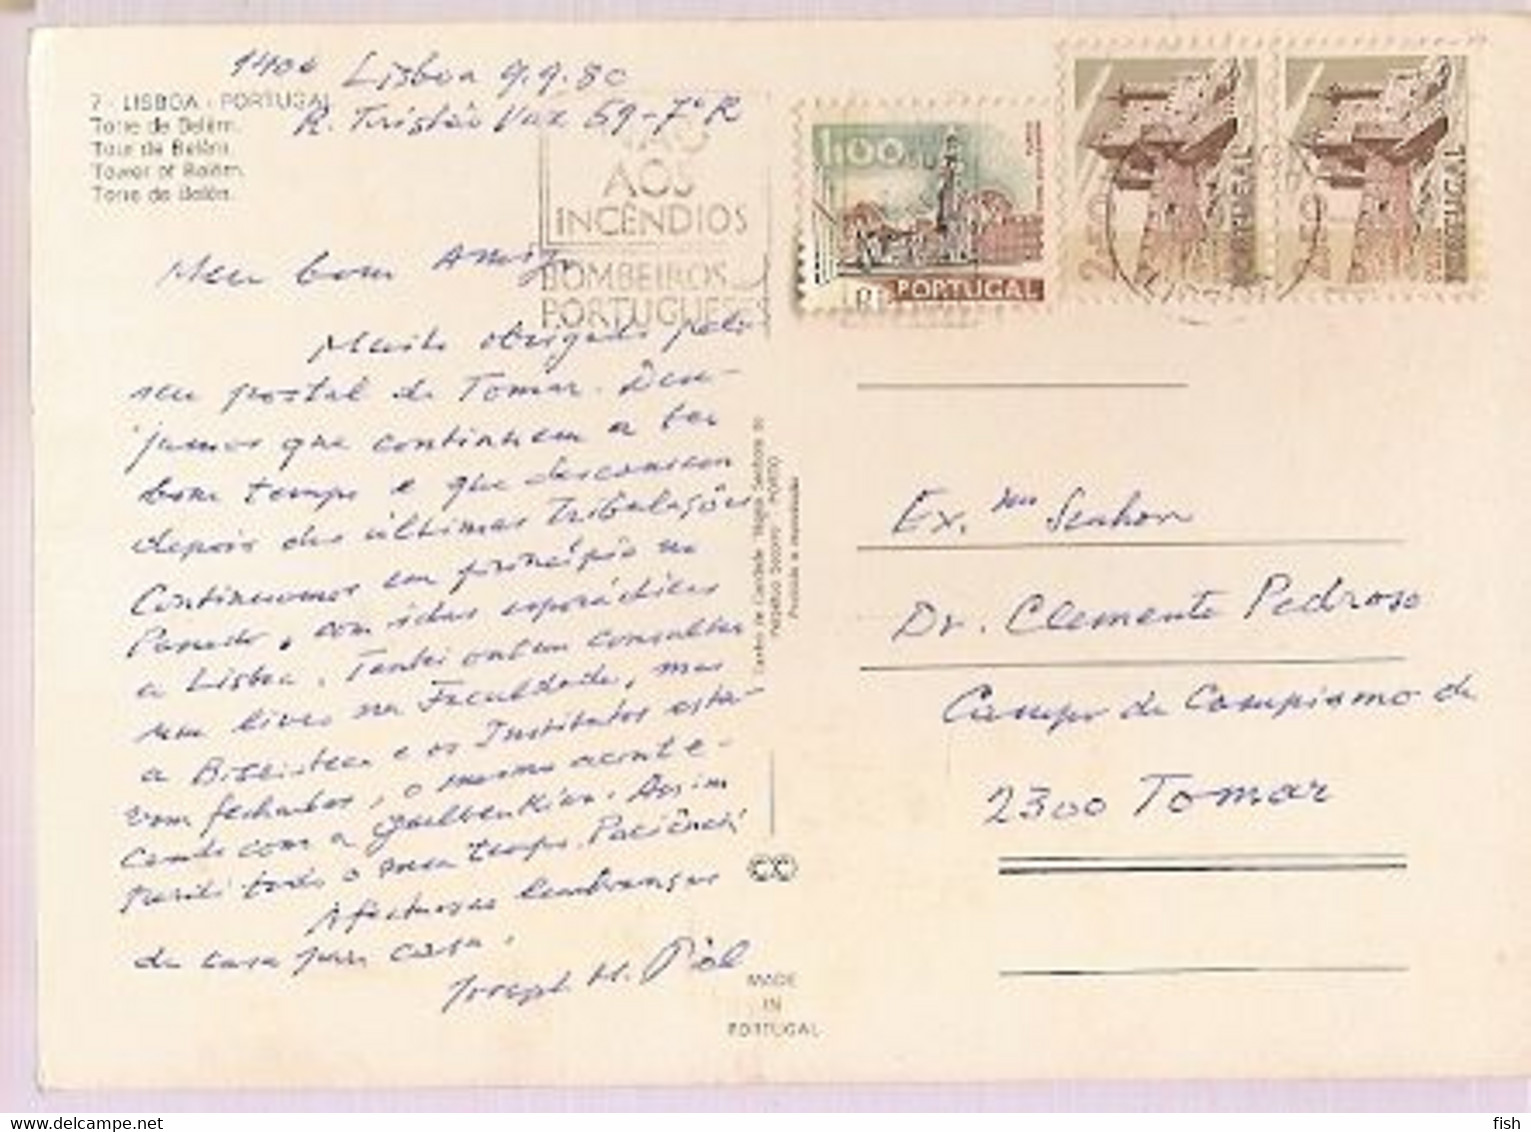 1400 Lisboa 9.9.80
R. Tristão Vaz 59-7º R
7 - LISBOA - PORTUGAL
Torre de Belém.
Tour de Belém.
Tower of Belém.
Torre de Belém.
NÃO
AOS
INCÊNDIOS
BOMBEIROS
PORTUGUESES
1$00
PORTUGAL
2$50
PORTUGAL
2$50
PORTUGAL
Meu bom Amigo,
Muito obrigado pelo
seu postal de Tomar. Dese-
jamos que continuem a ter
bom tempo e que descansem
depois das últimas tribulações
Continuamos em princípio no
Penedo, com idas esporádicas
a Lisboa. Tentei ontem consultar
um livro na Faculdade, mas
a Biblioteca e os Institutos esta-
vam fechados, o mesmo aconte-
cendo com a Gulbenkian. Assim
perdi todo o meu tempo. Paciência!
Afectuosas lembranças
de casa para casa.
Joseph M. Piel
Ex.mo Senhor
Dr. Clemente Pedroso
Campo de Campismo de
2300 Tomar
Perpétuo Socorro" - PORTO
CC
MADE
IN
PORTUGAL
fish
delcampe.net